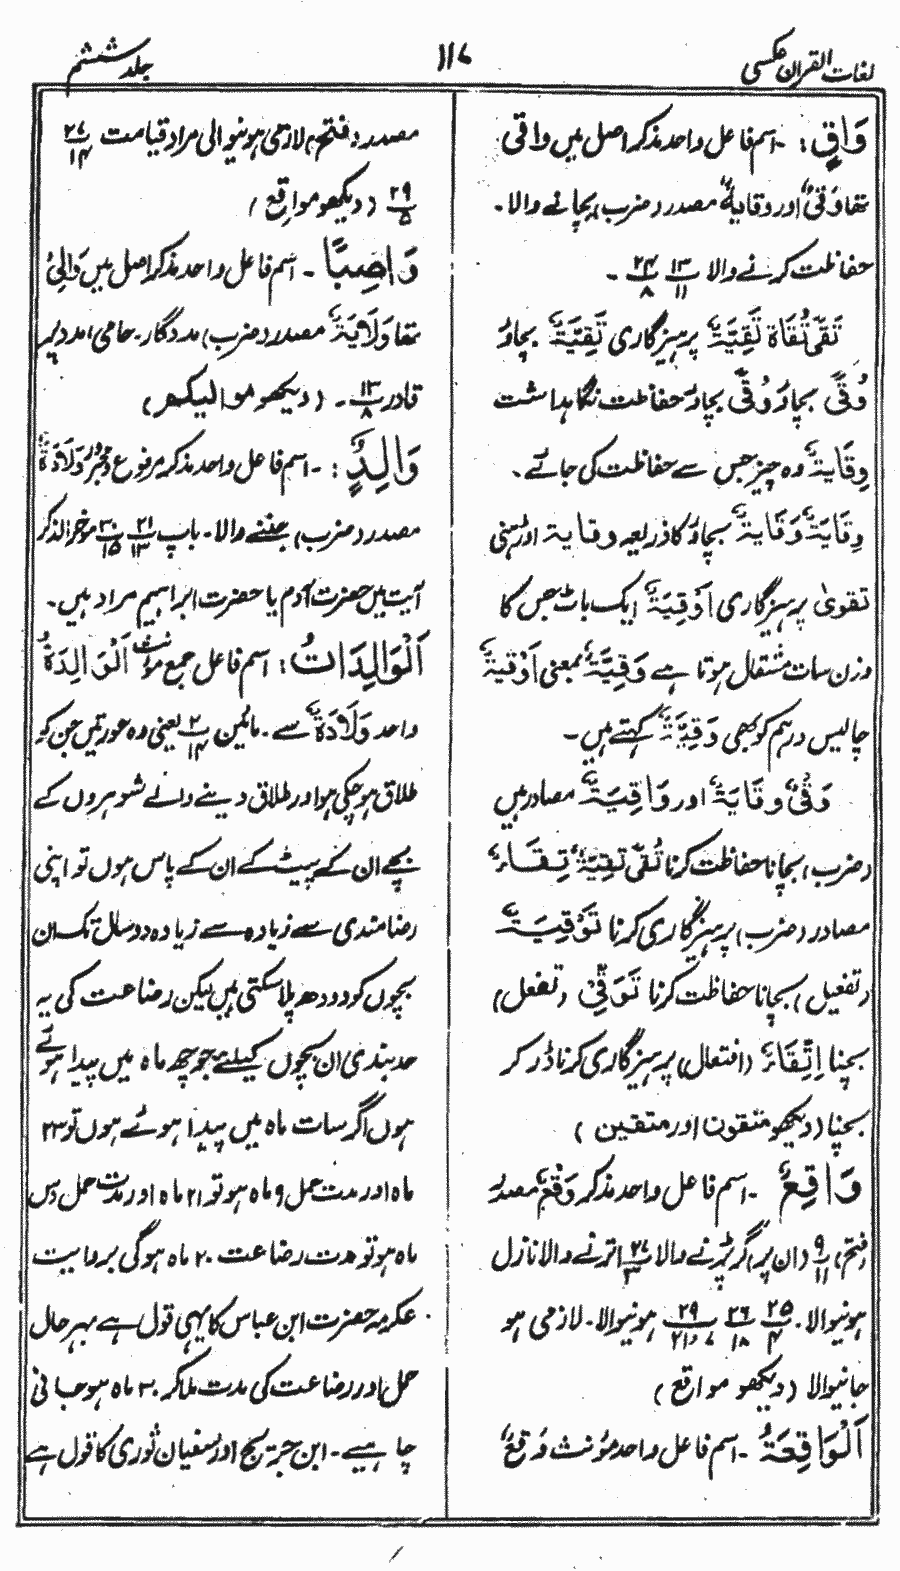 لغات القرآن عکسی
۱۱۷
جلد ششم
وَاقٍ: ۔ اسم فاعل واحد مذکر اصل میں واقی
تھا وَقْیٌ اور وقایۃٌ مصدر (ضرب) بچانے والا۔
حفاظت کرنے والا ۱۳/۱۱ ۲۴/۸ ۔
تَقِیَّۃٌ پرہیزگاری تَقِیَّۃٌ بچاؤ
بچاؤ وُقًی بچاؤ حفاظت نگاہداشت
وِقَایَۃٌ وہ چیز جس سے حفاظت کی جائے۔
وِقَایَۃٌ وَقَایَۃٌ بچاؤ کا ذریعہ وقایۃ اوڑھنی
تقویٰ پرہیزگاری اُوْقِیَۃٌ ایک باٹ جس کا
وزن سات مثقال ہوتا ہے وَقِیَّۃٌ بمعنی اَوْقیۃٌ
چالیس درہم کو بھی وَقِیَّۃٌ کہتے ہیں۔
وَقْیٌ وقَایَۃٌ اور وَاقِیَۃٌ مصادر ہیں
(ضرب) بچانا حفاظت کرنا تُقًی تَقِیَّۃٌ تِقَاءٌ
مصادر (ضرب) پرہیزگاری کرنا تَوْقِیَۃٌ
(تفعیل) بچانا حفاظت کرنا تَوَقِّیْ (تفعل)
بچنا اِتِّقَاءٌ (افتعال) پرہیزگاری کرنا ڈر کر
بچنا (دیکھو متقون اور متقین)
وَاقِعٌ ۔ اسم فاعل واحد مذکر وَقْعٌ مصدر
(فتح) ۹/۱۱ (ان پر) گر پڑنے والا ۲۷/۳ اترنے والا نازل
ہونیوالا۔ ۲۵/۴ ۲۶/۱۸ ۲۹/۷،۲۱ ہونیوالا۔ لازمی ہو
جانیوالا (دیکھو مواقع)
اَلْوَاقِعَۃُ ۔ اسم فاعل واحد مؤنث وَقْعٌ
مصدر (فتح) لازمی ہونیوالی مراد قیامت ۲۷/۱۴
۲۹/۵ (دیکھو مواقع)
وَاصِبًا ۔ اسم فاعل واحد مذکر اصل میں وَالِیٌ
تھا وَلَایَۃٌ مصدر (ضرب) مددگار۔ حامی امدد پر
قادر ۱۳/۸ ۔ (دیکھو موالیکم)
وَالِدٌ: ۔ اسم فاعل واحد مذکر مرفوع ومجرور وِلَادَۃٌ
مصدر (ضرب) جننے والا۔ باپ ۲۱/۱۳ ۳۰/۱۵ مؤخر الذکر
آیت میں حضرت آدم یا حضرت ابراہیم مراد ہیں۔
اَلْوَالِدَاتُ: اسم فاعل جمع مؤنث اَلْوَالِدَۃُ
واحد وِلَادَۃٌ سے۔ مائیں ۲/۱۴ یعنی وہ عورتیں جن کو
طلاق ہو چکی ہو اور طلاق دینے والے شوہروں کے
بچے ان کے پیٹ کے ان کے پاس ہوں تو اپنی
رضامندی سے زیادہ سے زیادہ دو سال تک ان
بچوں کو دودھ پلا سکتی ہیں لیکن رضاعت کی یہ
حد بندی ان بچوں کیلئے ہے جو چھ ماہ میں پیدا ہوئے
ہوں اگر سات ماہ میں پیدا ہوئے ہوں تو ۲۳
ماہ اور مدت حمل ۹ ماہ ہو تو ۲۱ ماہ اور مدت حمل دس
ماہ ہو تو مدت رضاعت ۲۰ ماہ ہوگی بروایت
عکرمہ حضرت ابن عباس کا یہی قول ہے بہرحال
حمل اور رضاعت کی مدت ملا کر ۳۰ ماہ ہو جانی
چاہیے۔ ابن جریج اور سفیان ثوری کا قول ہے